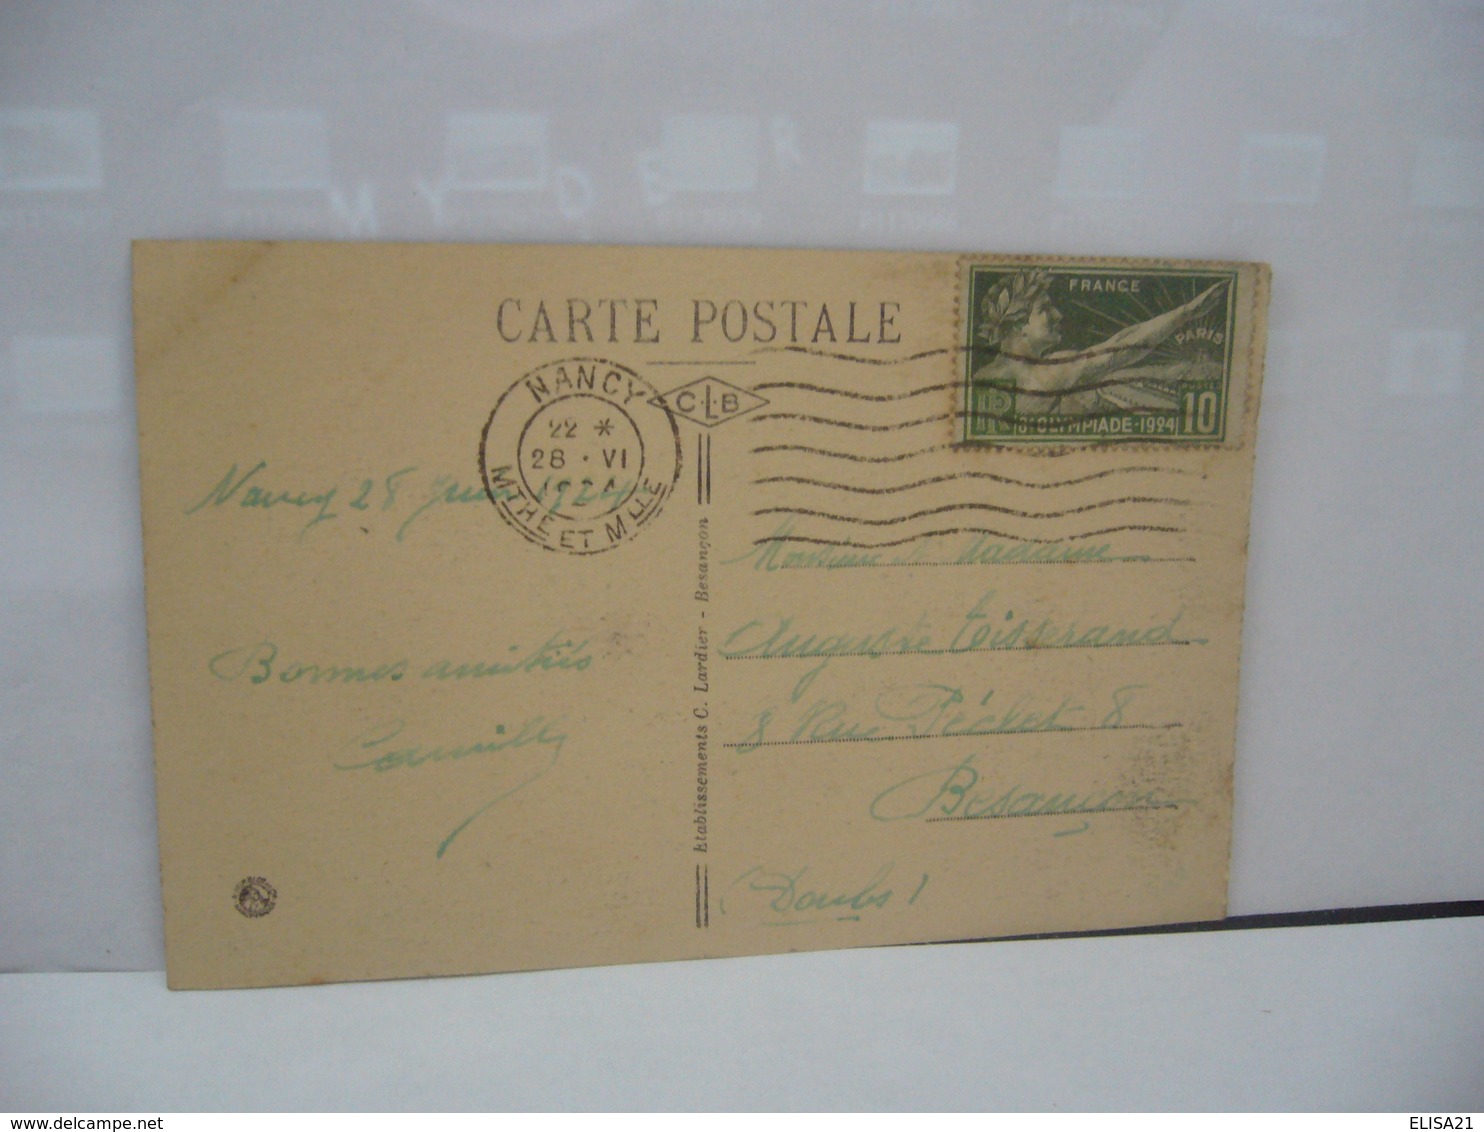 CARTE POSTALE
C.L.B
NANCY
22 *
28 · VI
1924
MTHE ET MLLE
FRANCE
PARIS
8E OLYMPIADE · 1924
10
Nancy 28 Juin 1924
Bonnes amitiés
Camille
Etablissements C. Lardier - Besançon
Monsieur & Madame
Auguste Tisserand
8 Rue Péclet 8
Besançon
(Doubs)
delcampe.net
ELISA21